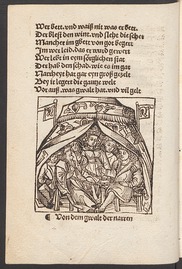 Wer bett, vnd waiß nit was er bett,
Der bleßt den wint, vnd schlecht die schet
Mancher im gbett von got begert
Im wer leid, das er wurd gewert
Wer lebt in eym sörglichen stat
Der hab den schad, wie es im gat
Narrheyt hat gar eyn groß gezelt
Bey ir legert die gantze welt
Vor auß, was gwalt hat, vnd vil gelt
¶ Von dem gwalt der narren